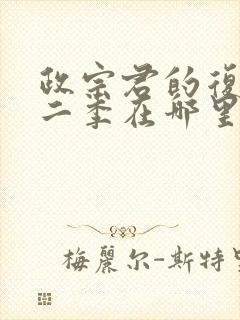 政宗君的復
二季在哪里
梅麗尔-斯特里